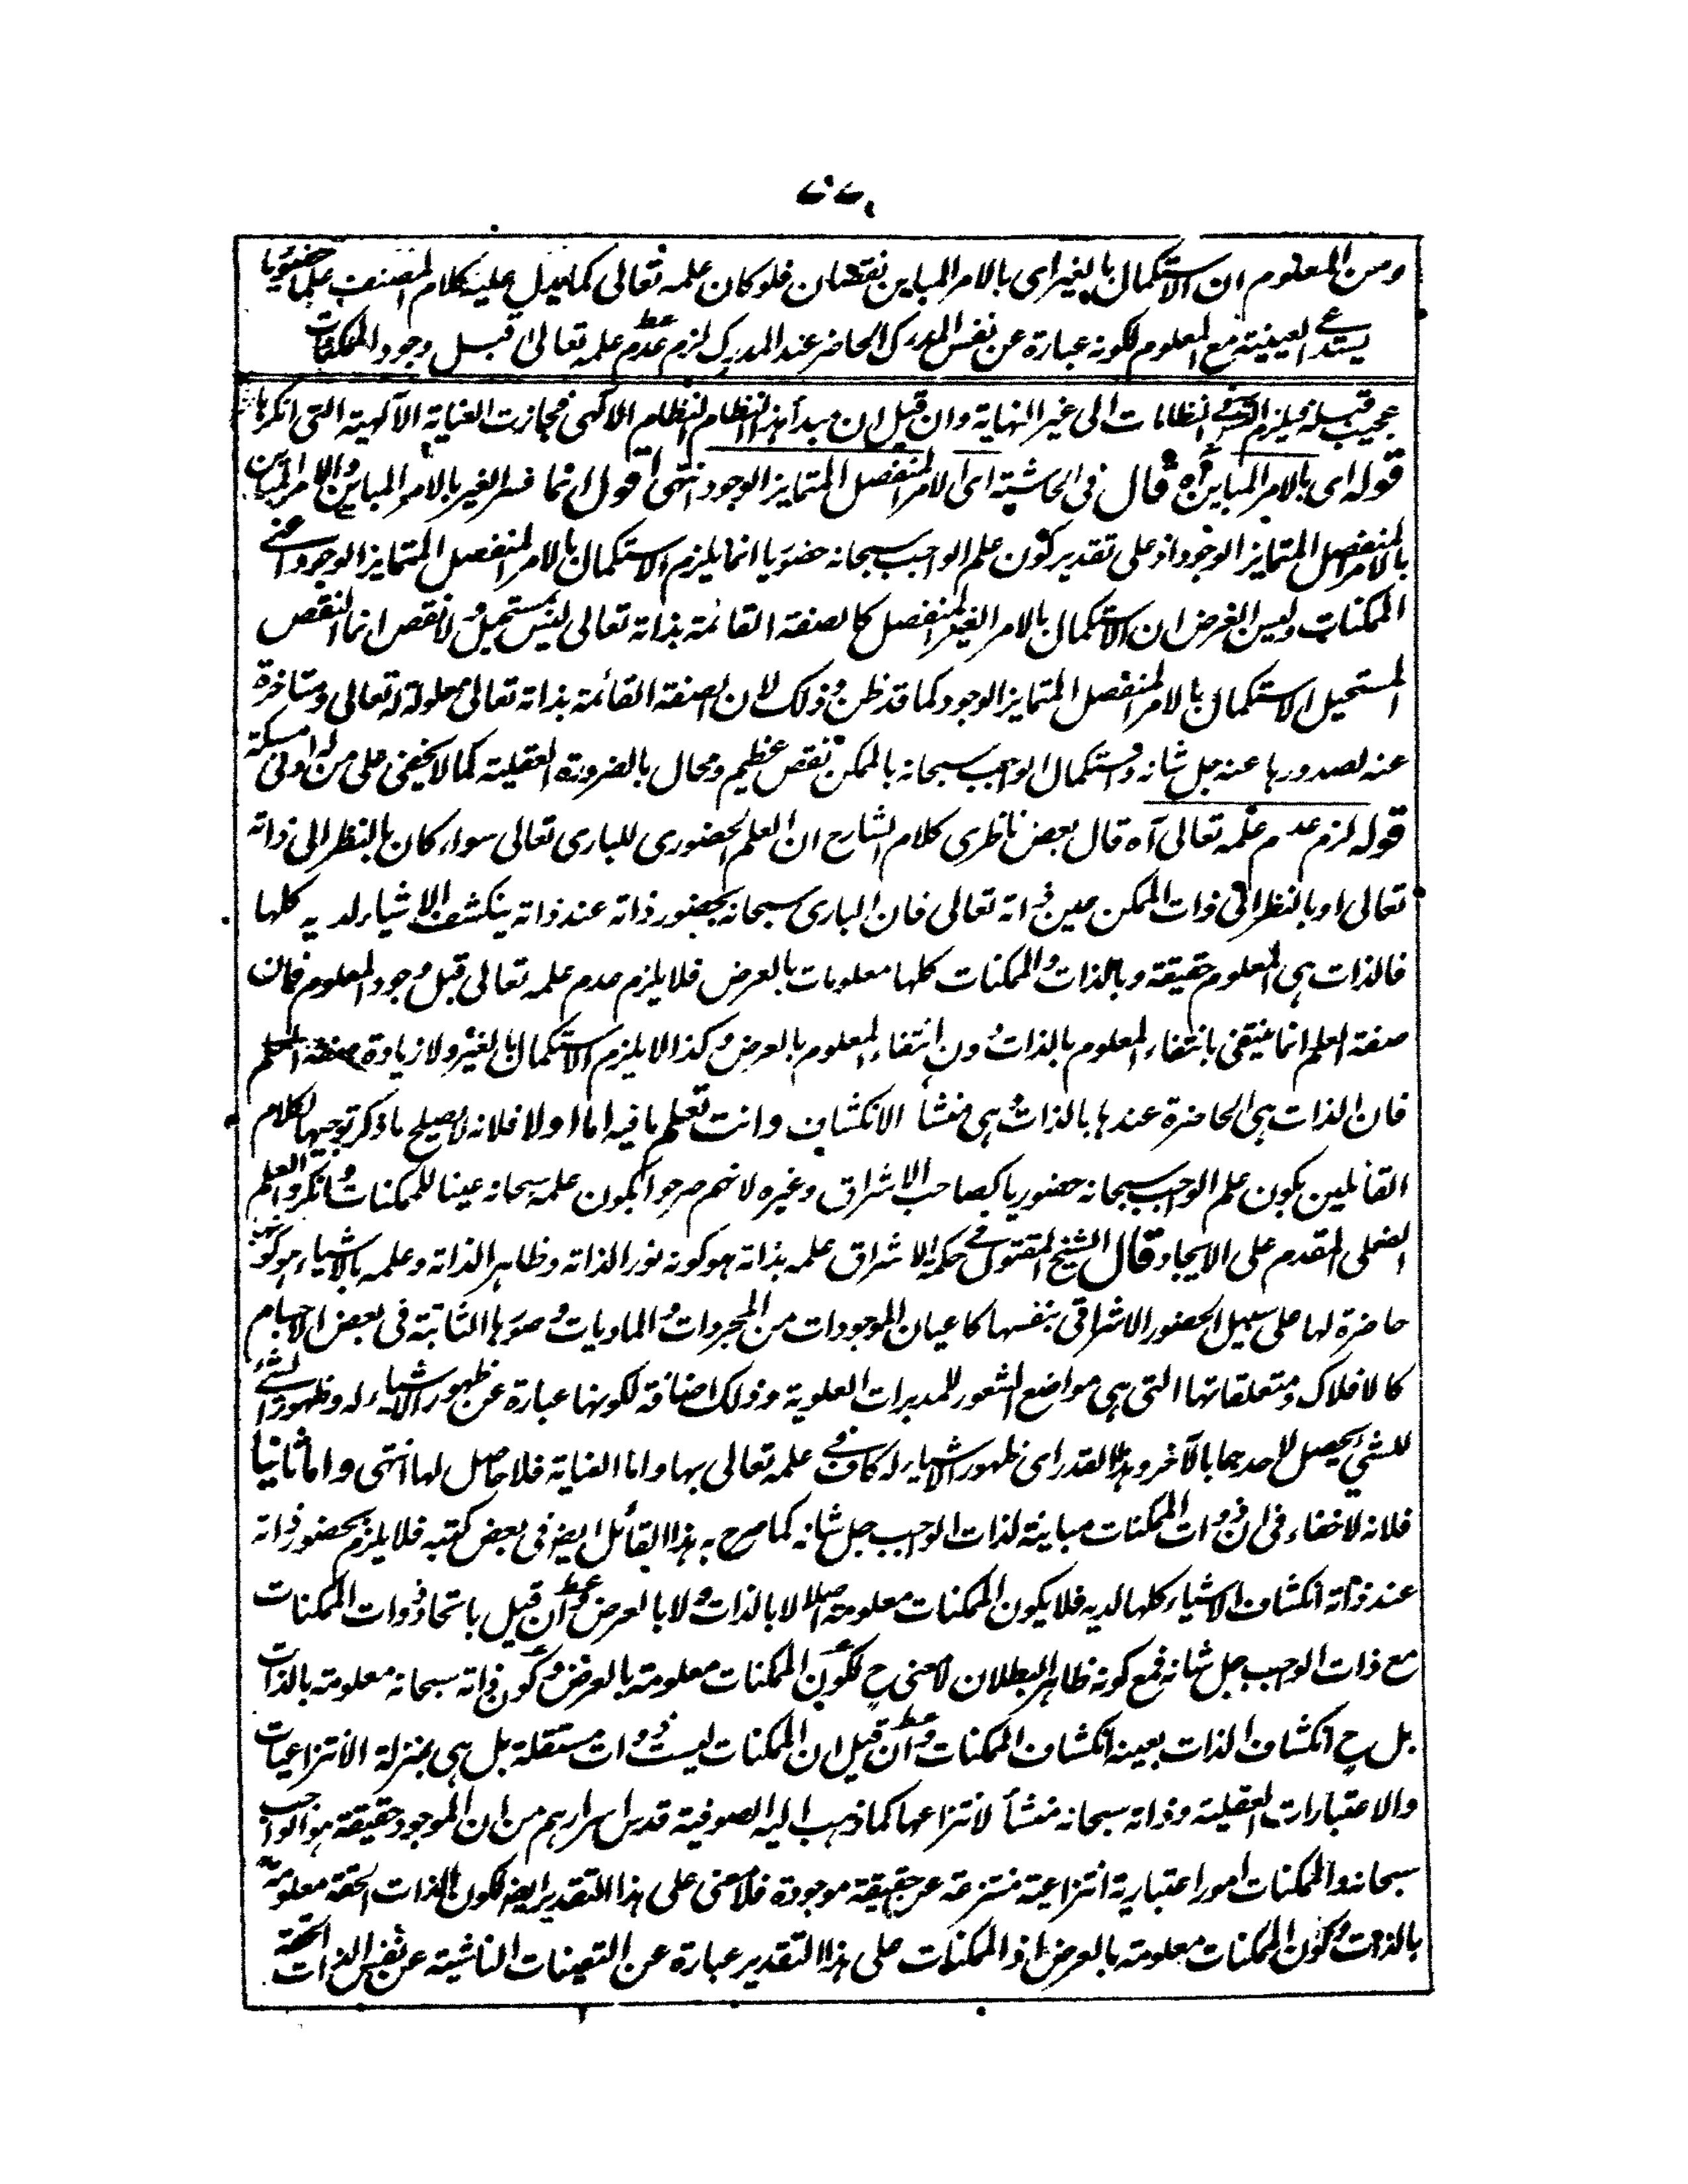 ومن المعلوم ان الاستكمال بالغير اى بالامر المباين نقصان فلو كان علمه تعالى كما يدل عليه كلام المصنف علما حضوريا
يستدعى العينية مع المعلوم لكونه عبارة عن نفس المدرك الحاضر عند المدرك لزم عدم علمه تعالى قبل وجود الممكنات
عجيب قبله فيلزم النظامات الى غير النهاية وان قيل ان مبدأ هذا النظام النظام الالهى فجازت العناية الآلهية التى انكرها
قوله اى بالامر المباين آه قال فى الحاشية اى الامر المنفصل المتمايز الوجود انتهى اقول انما فسر الغير بالامر المباين والامر المباين
بالامر المنفصل المتمايز الوجود اذ على تقدير كون علم الواجب سبحانه حضوريا انما يلزم الاستكمال بالامر المنفصل المتمايز الوجود اعنى
الممكنات وليس الغرض ان الاستكمال بالامر الغير المنفصل كالصفة القائمة بذاته تعالى ليس بمستحيل ولا نقص انما النقص
المستحيل الاستكمال بالامر المنفصل المتمايز الوجود كما قد ظن وذلك لان الصفة القائمة بذاته تعالى معلولة له تعالى ومتاخرة
عنه لصدورها عنه جل شانه واستكمال الواجب سبحانه بالممكن نقص عظيم ومحال بالضرورة العقلية كما لا يخفى على من له ادنى مسكة
قوله لزم عدم علمه تعالى آه قال بعض ناظرى كلام الشارح ان العلم الحضورى للبارى تعالى سواء كان بالنظر الى ذاته
تعالى او بالنظر الى ذات الممكن عين ذاته تعالى فان البارى سبحانه بحضور ذاته عند ذاته ينكشف الاشياء لديه كلها
فالذات هى المعلوم حقيقة وبالذات والممكنات كلها معلومات بالعرض فلا يلزم عدم علمه تعالى قبل وجود المعلوم فان
صفة العلم انما ينتفى بانتفاء المعلوم بالذات دون انتفاء المعلوم بالعرض وكذا لا يلزم الاستكمال بالغير ولا زيادة صفة العلم
فان الذات هى الحاضرة عندها بالذات وهى منشأ الانكشاف وانت تعلم ما فيه اما اولا فلانه لا يصلح ما ذكر توجيها لكلام
القائلين بكون علم الواجب سبحانه حضوريا كصاحب الاشراق وغيره لانهم صرحوا بكون علمه سبحانه عينا للممكنات وانكروا العلم
الفعلى المقدم على الايجاد قال الشيخ المقتول فى حكمة الاشراق علمه بذاته هو كونه نور الذاته وظاهر الذاته وعلمه بالاشياء هو كونها
حاضرة لها على سبيل الحضور الاشراقى بنفسها كاعيان الموجودات من المجردات والماديات وصورها الثابتة فى بعض الاجسام
كالافلاك ومتعلقاتها التى هى مواضع الشعور للمدبرات العلوية وذلك اضافة لكونها عبارة عن ظهور الاشياء له وظهور الشئ
للشئ يحصل لاحدهما بالآخر وهذا القدر اى ظهور الاشياء له كاف فى علمه تعالى بها واما العناية فلا حاصل لها انتهى واما ثانيا
فلانه لا خفاء فى ان ذوات الممكنات مباينة لذات الواجب جل شانه كما صرح به هذا القائل ايضا فى بعض كتبه فلا يلزم بحضور ذاته
عند ذاته انكشاف الاشياء كلها لديه فلا يكون الممكنات معلومة اصلا لا بالذات ولا بالعرض وان قيل باتحاد ذوات الممكنات
مع ذات الواجب جل شانه فمع كونه ظاهر البطلان لا معنى ح لكون الممكنات معلومة بالعرض وكون ذاته سبحانه معلومة بالذات
بل ح انكشاف الذات بعينه انكشاف الممكنات وان قيل ان الممكنات ليست ذوات مستقلة بل هى بمنزلة الانتزاعيات
والاعتبارات العقلية وذاته سبحانه منشأ لانتزاعها كما ذهب اليه الصوفية قدس اسرارهم من ان الموجود حقيقة هو الواجب
سبحانه والممكنات امور اعتبارية انتزاعية منتزعة عن حقيقة موجودة فلا معنى على هذا التقدير ايضا لكون الذات الحقة معلومة
بالذات وكون الممكنات معلومة بالعرض اذ الممكنات على هذا التقدير عبارة عن التعينات الناشية عن نفس الذات الحقة